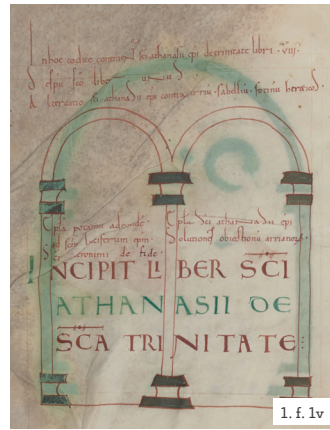 In hoc codice continentur sci athanasii epi de trinitate libri · VIII ·
De spu sco liber unus
Altercatio sci athanasii epi contra arriu · sabelliu · fotinu hereticos
Epla potamii ad
Epla Sci athanasii epi
Solutiones obiectionu arrianoru
Sci eronimi de fide
INCIPIT LIBER SCI
ATHANASII DE
SCA TRINITATE
1. f. 1v